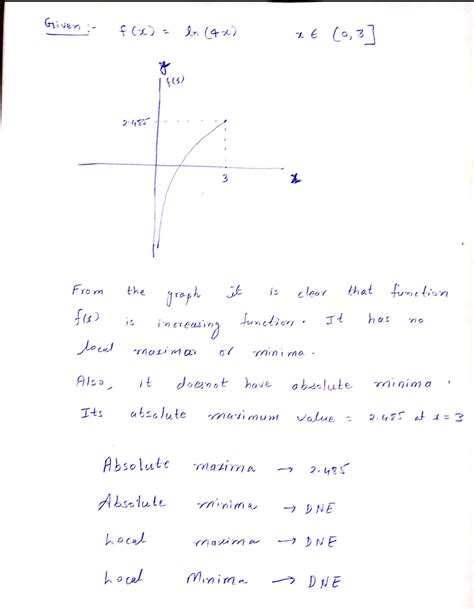 Given :- f(x) = ln(4x) x ∈ (0, 3]
y
f(x)
2.485
3
x
From the graph it is clear that function
f(x) is increasing function. It has no
local maximas or minima.
Also, it doesnot have absolute minima.
Its absolute maximum value = 2.485 at x = 3
Absolute maxima → 2.485
Absolute minima → DNE
Local maxima → DNE
Local Minima → DNE